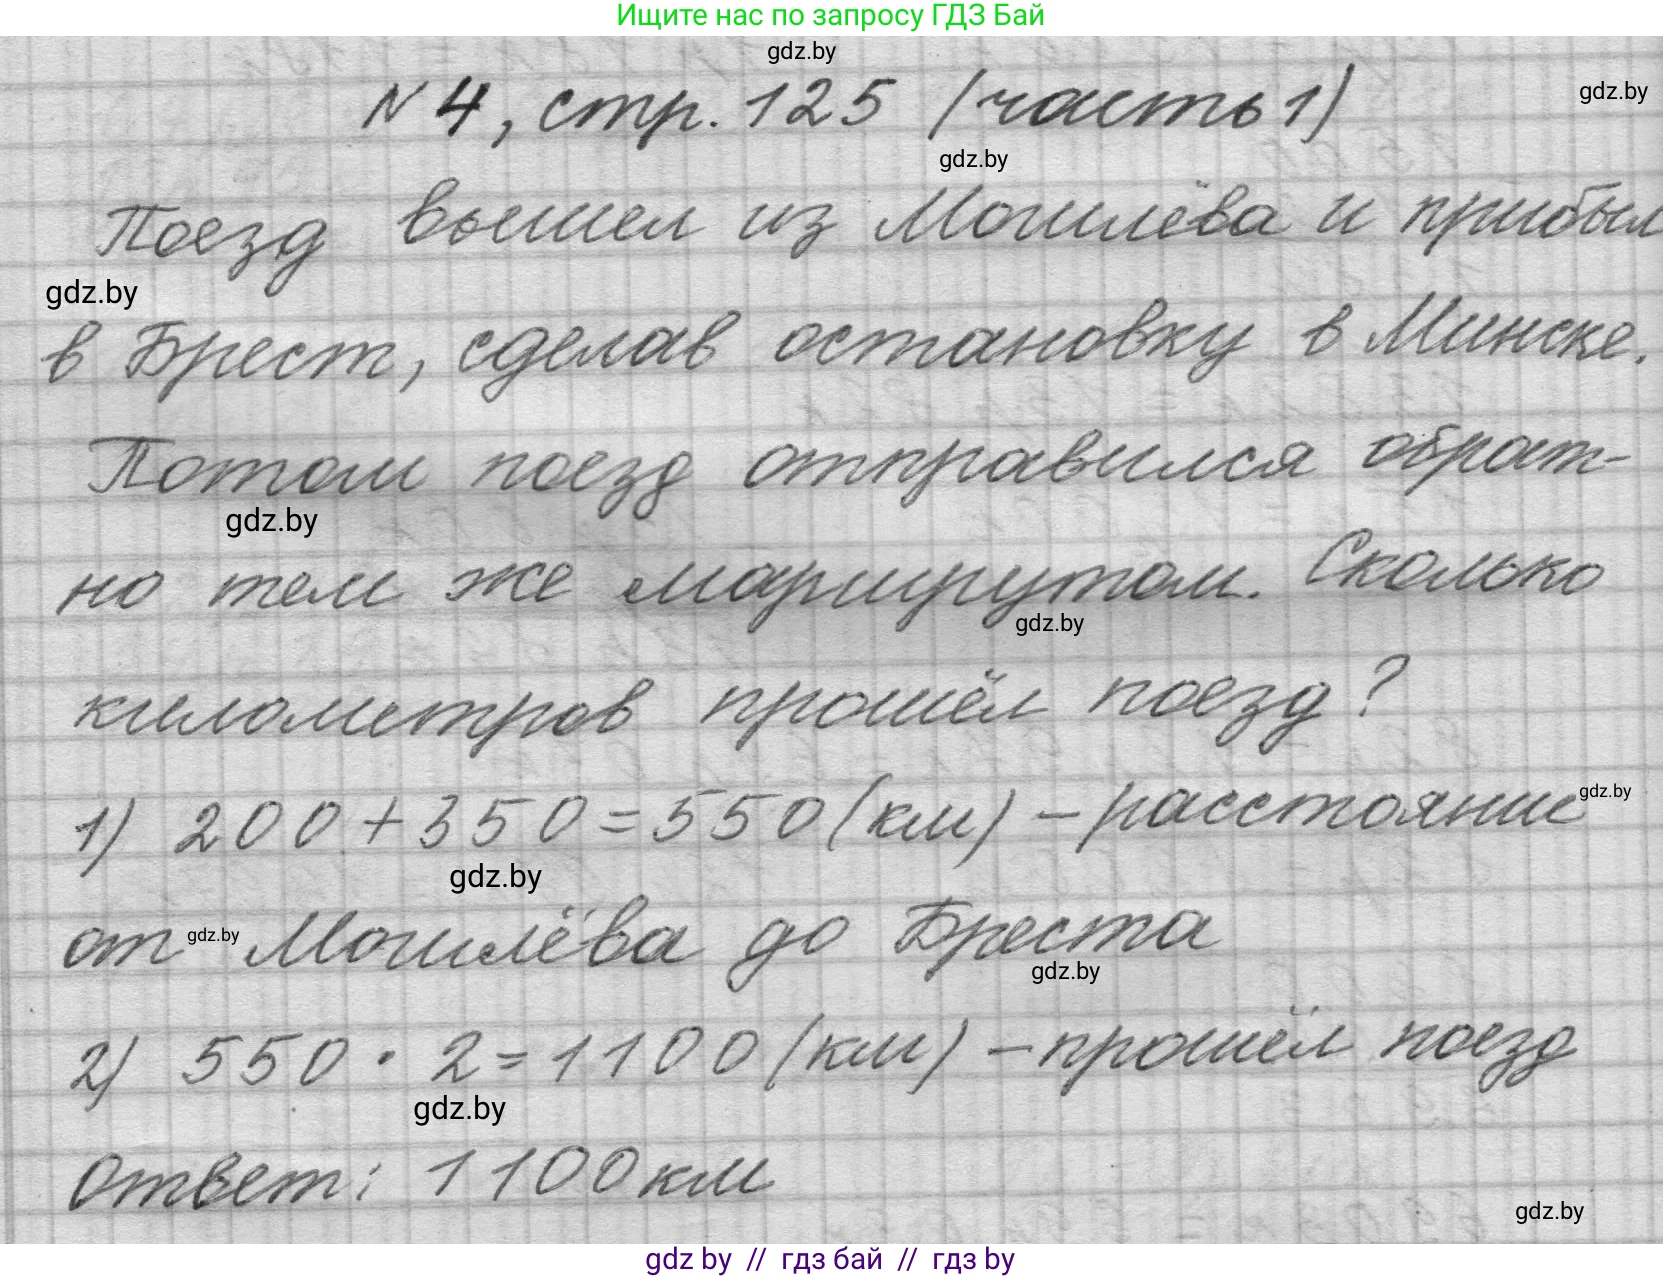 Ищите нас по запросу ГДЗ Бай
gdz.by
№ 4, стр. 125 (часть 1)
gdz.by
gdz.by
Поезд вышел из Могилёва и прибыл
gdz.by
в Брест, сделав остановку в Минске.
Потом поезд отправился обрат-
gdz.by
но тем же маршрутом. Сколько
gdz.by
километров прошёл поезд?
1) 200 + 350 = 550 (км) - расстояние
gdz.by
gdz.by
от Могилёва до Бреста
gdz.by
gdz.by
2) 550 · 2 = 1100 (км) - прошёл поезд
gdz.by
Ответ: 1100 км
gdz.by
gdz by // гдз бай // гдз by